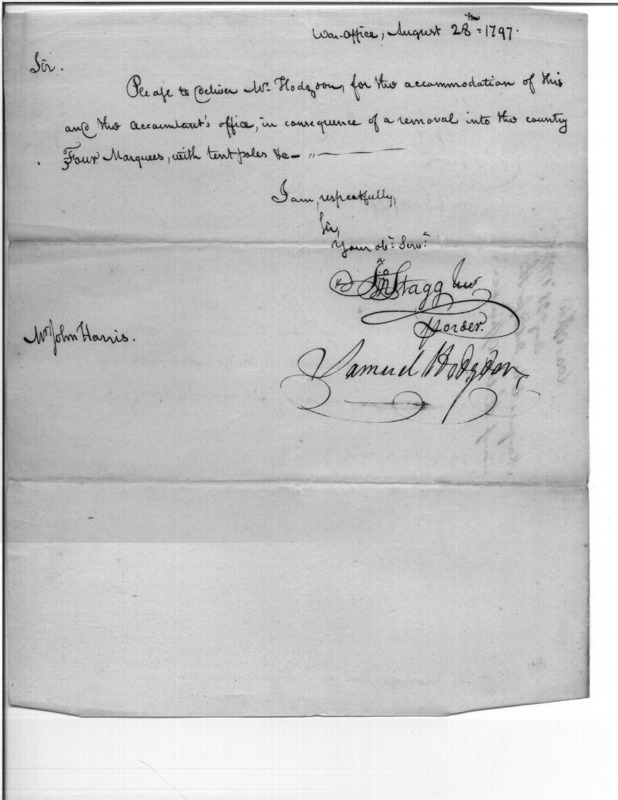 War-Office, August 28th = 1797.
Sir.
Please to deliver Mr. Hodgdon, for the accommodation of this
and the accountant's office, in consequence of a removal into the country
Four Marquees, with tent poles &c—
I am, respectfully,
Sir,
Your obt. Servt.
Jno Stagg Junr
Mr. John Harris.
order.
Samuel Hodgdon,